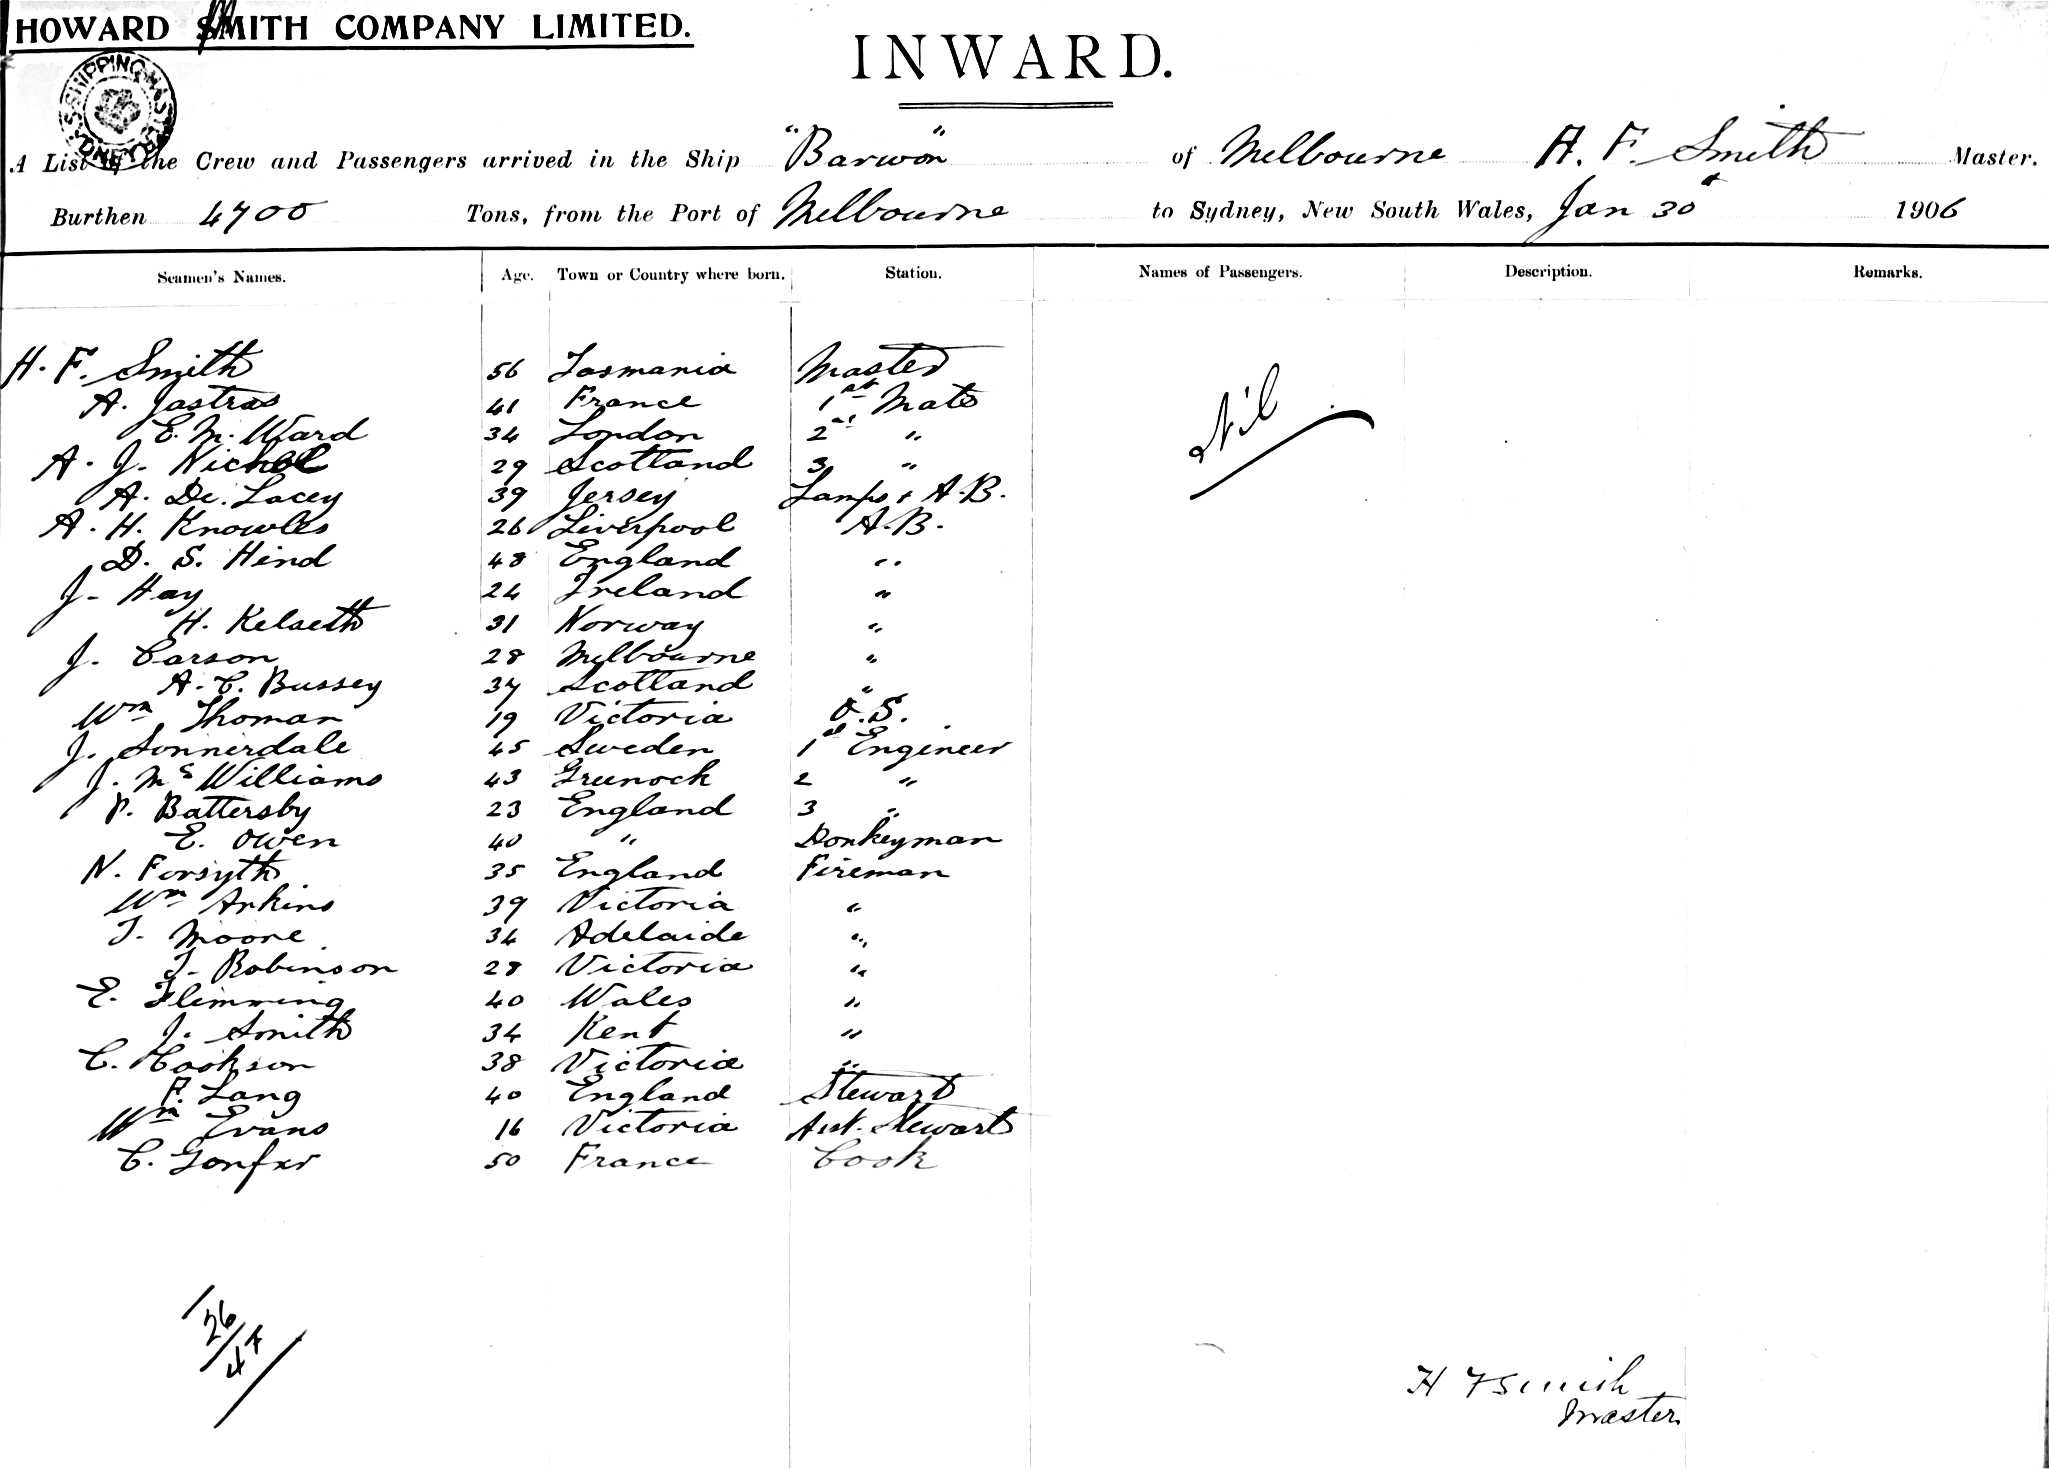 HOWARD SMITH COMPANY LIMITED.
INWARD.
SHIPPING MASTER SYDNEY
A List of the Crew and Passengers arrived in the Ship "Barwon" of Melbourne H. F. Smith Master.
Burthen 4700 Tons, from the Port of Melbourne to Sydney, New South Wales, Jan 30 1906
Seamen's Names. Age. Town or Country where born. Station. Names of Passengers. Description. Remarks.
H. F. Smith 56 Tasmania Master
A. Jastras 41 France 1st Mate
Nil
E. M. Ward 34 London 2nd "
A. J. Nichol 29 Scotland 3 "
A. De. Lacey 39 Jersey Lamps + A.B.
A. H. Knowles 26 Liverpool A.B.
D. S. Hind 48 England "
J. Hay 24 Ireland "
H. Kelseth 31 Norway "
J. Carson 28 Melbourne "
A. C. Bussey 37 Scotland "
Wm Thomas 19 Victoria O.S.
J. Sonnerdale 45 Sweden 1st Engineer
J. McWilliams 43 Greenock 2 "
P. Battersby 23 England 3 "
E. Owen 40 " Donkeyman
N. Forsyth 35 England Fireman
Wm Arkins 39 Victoria "
T. Moore 34 Adelaide "
J. Robinson 28 Victoria "
E. Flimming 40 Wales "
J. Smith 34 Kent "
C. Cookson 38 Victoria "
F. Lang 40 England Stewart
Wm Evans 16 Victoria Asst. Stewart
C. 50 France Cook
26/44
H F Smith
Master